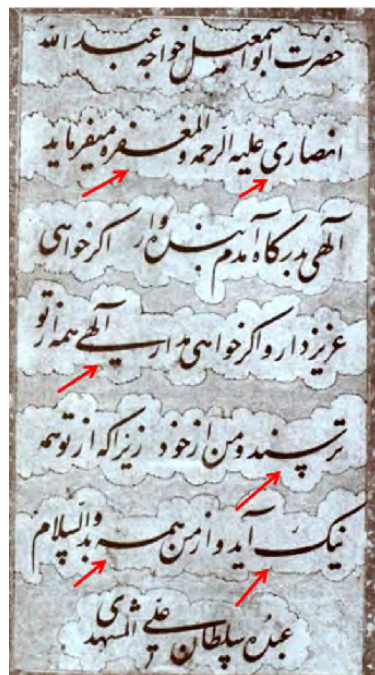 حضرت ابو اسمعیل خواجه عبد الله
انصاری علیه الرحمه والمغفره میفرماید
الهی بدرگاه آمدم بنده وار اگر خواهی
عزیز دار و اگر خواهی خوار الهی همه از تو
ترسند و من از خود زیرا که از تو همه
نیک آید و از من همه بد والسلام
عبده سلطان علی المشهدی